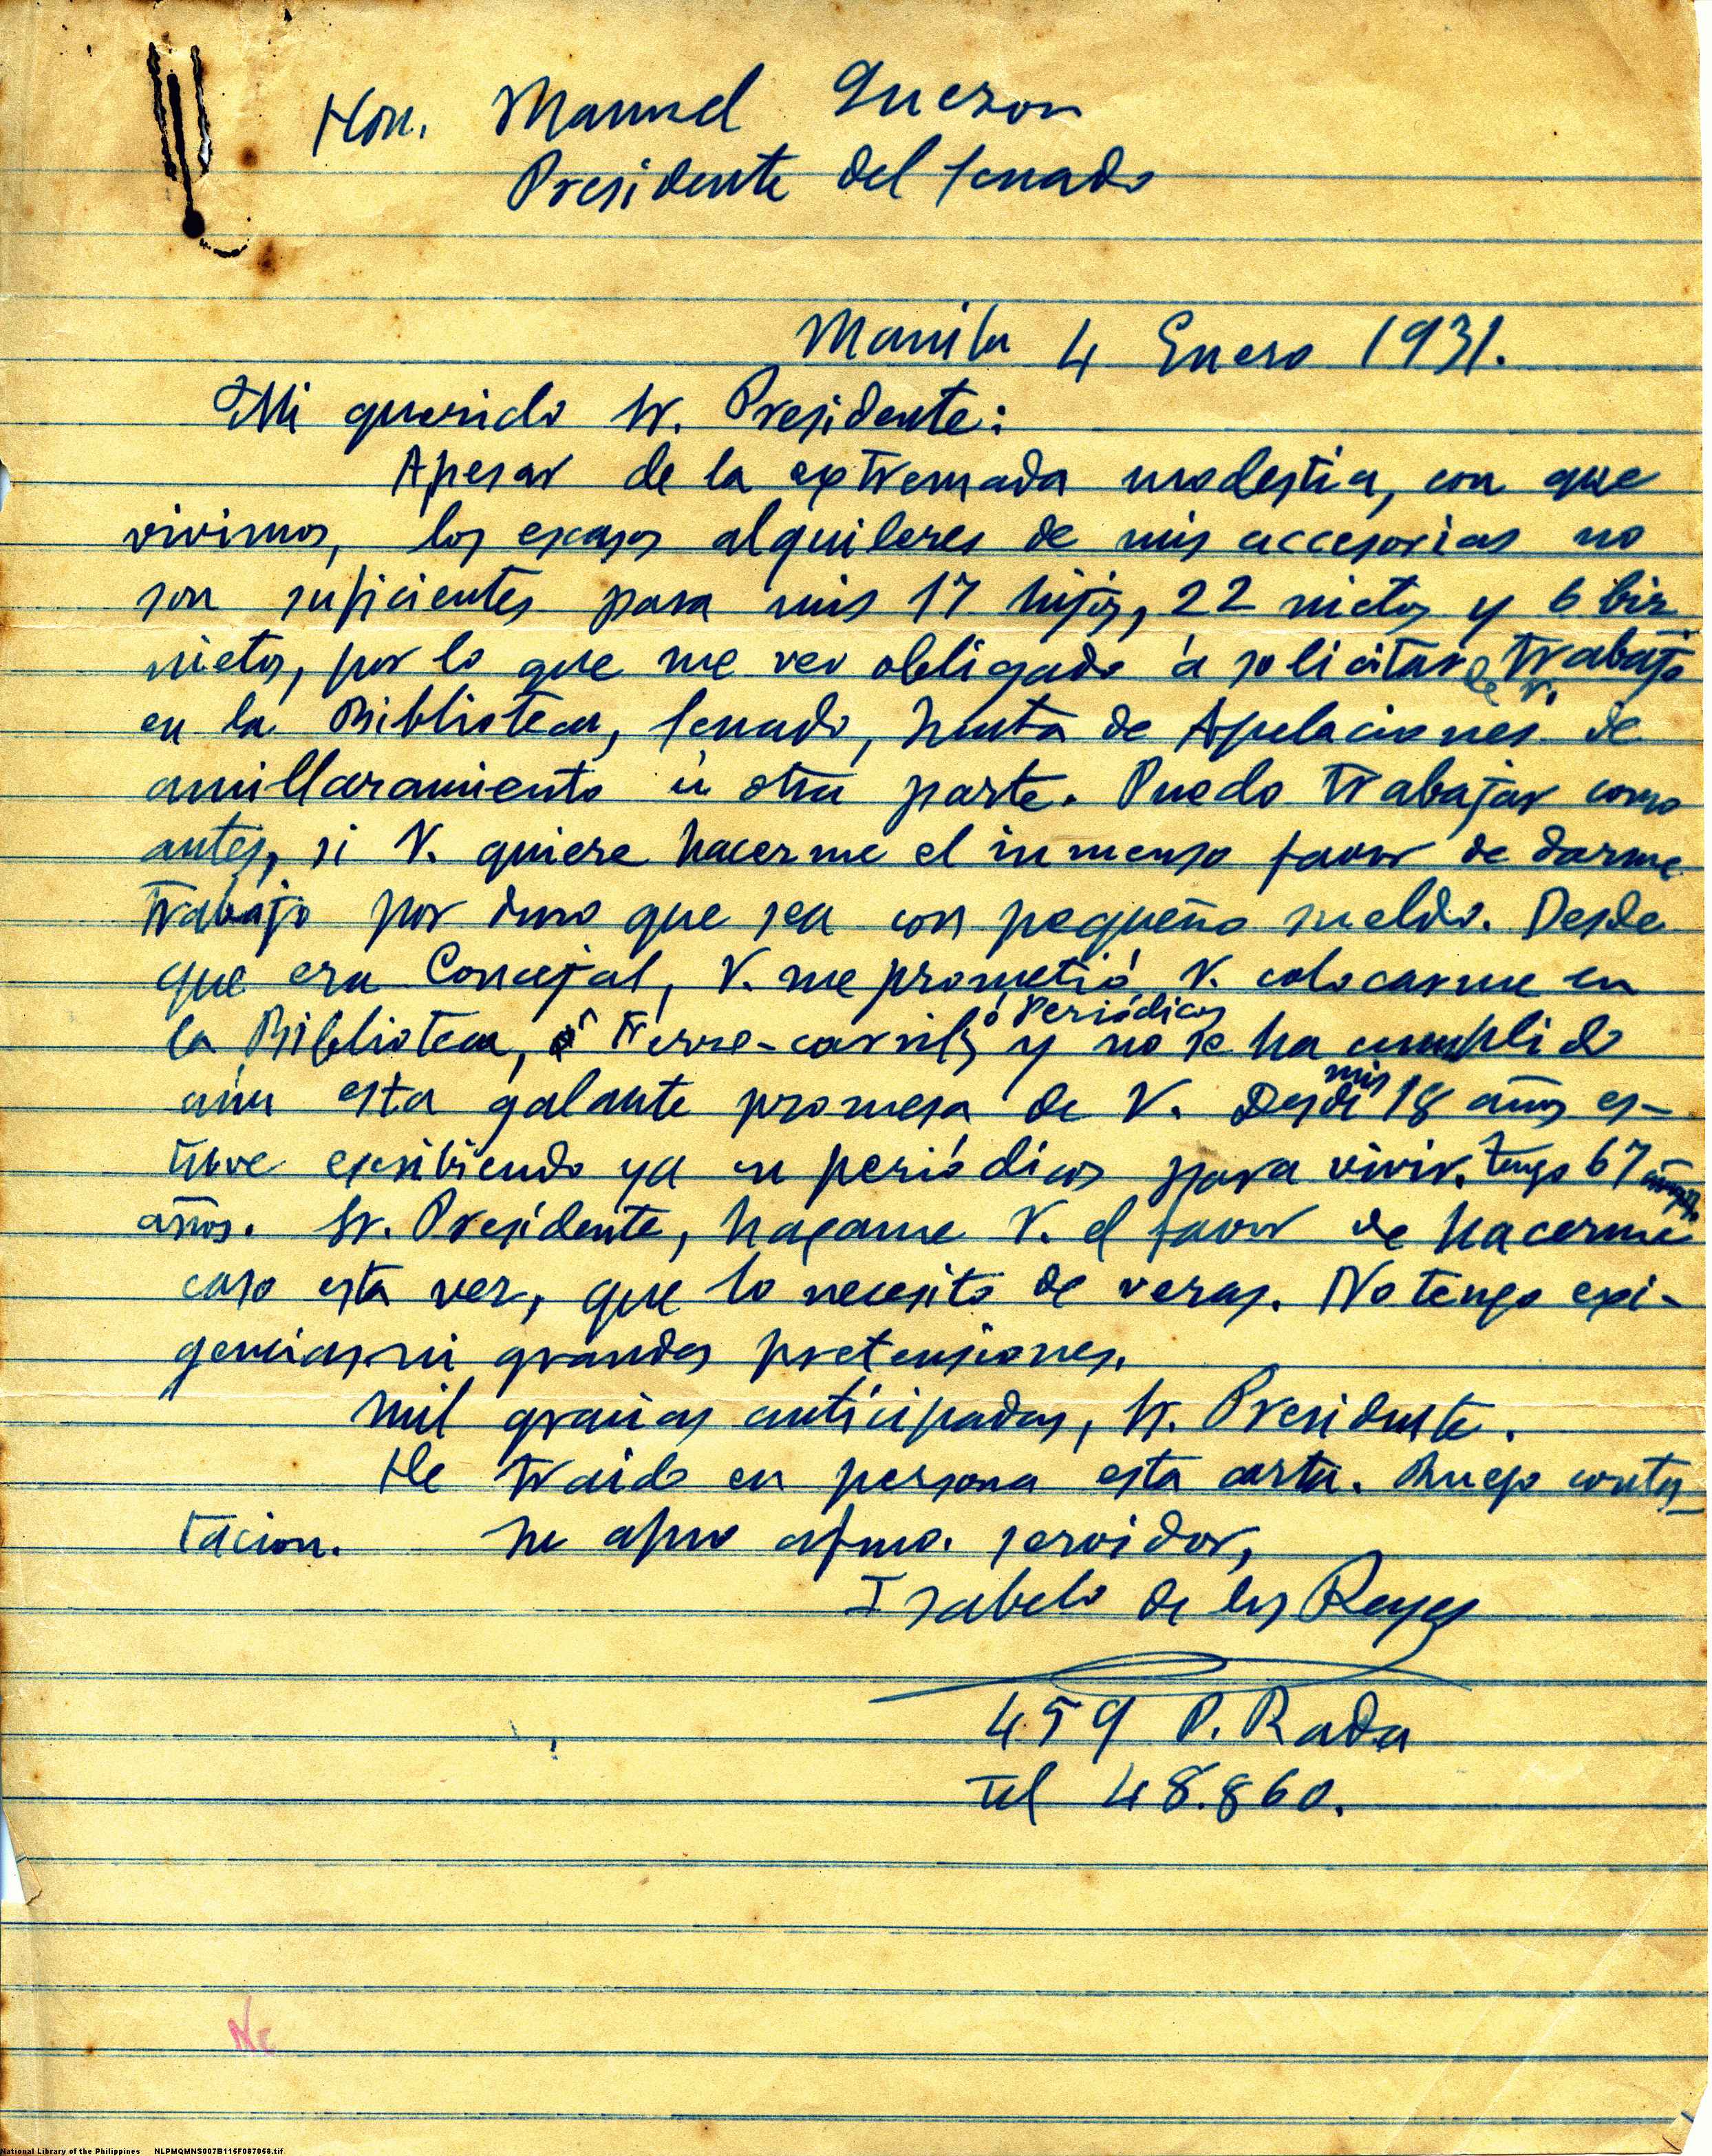 Hon. Manuel Quezon
Presidente del Senado
Manila 4 Enero 1931.
Mi querido Sr. Presidente:
Apesar de la extremada modestia, con que
vivimos, los escasos alquileres de mis accesorias no
son suficientes para mis 17 hijos, 22 nietos y 6 biz
nietos, por lo que me veo obligado á solicitar de V. trabajo
en la Biblioteca, Senado, Junta de Apelaciones de
amillaramiento ú otra parte. Puedo trabajar como
antes, si V. quiere hacerme el inmenso favor de darme
trabajo por duro que sea con pequeño sueldo. Desde
que era Concejal, V. me prometió V. colocarme en
la Biblioteca, Ferro-carriles ó Periódicos y no se ha cumplido
aun esta galante promesa de V. Desde mis 18 años es-
tuve escribiendo ya en periódicos para vivir. Tengo 67
años. Sr. Presidente, hagame V. el favor de hacerme
caso esta vez, que lo necesito de veras. No tengo exi-
gencias ni grandes pretensiones.
Mil gracias anticipadas, Sr. Presidente.
He traido en persona esta carta. Ruego contes-
tacion. Su apmo afmo. servidor,
Isabelo de los Reyes
459 P. Rada
Tel 48.860.
National Library of the Philippines NLPMQMNS007B115F087058.tif